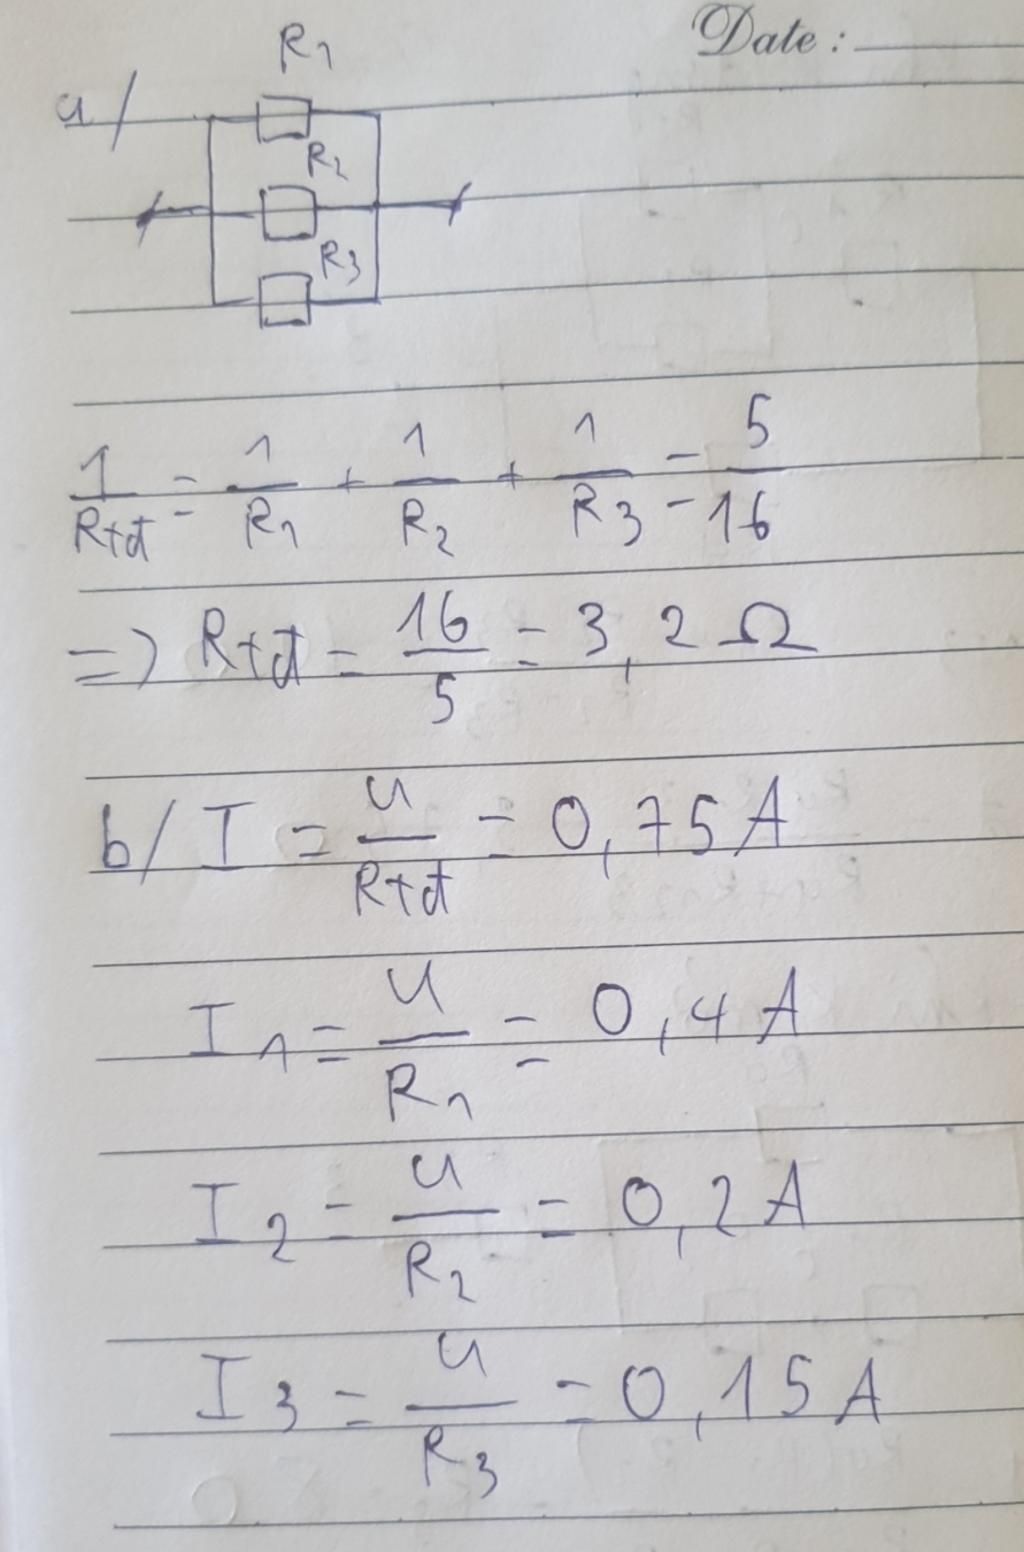 Date:
a/
R1
R2
R3
1/Rtđ = 1/R1 + 1/R2 + 1/R3 = 5/16
=> Rtđ = 16/5 = 3,2 Ω
b/ I = U/Rtđ = 0,75 A
I1 = U/R1 = 0,4 A
I2 = U/R2 = 0,2 A
I3 = U/R3 = 0,15 A